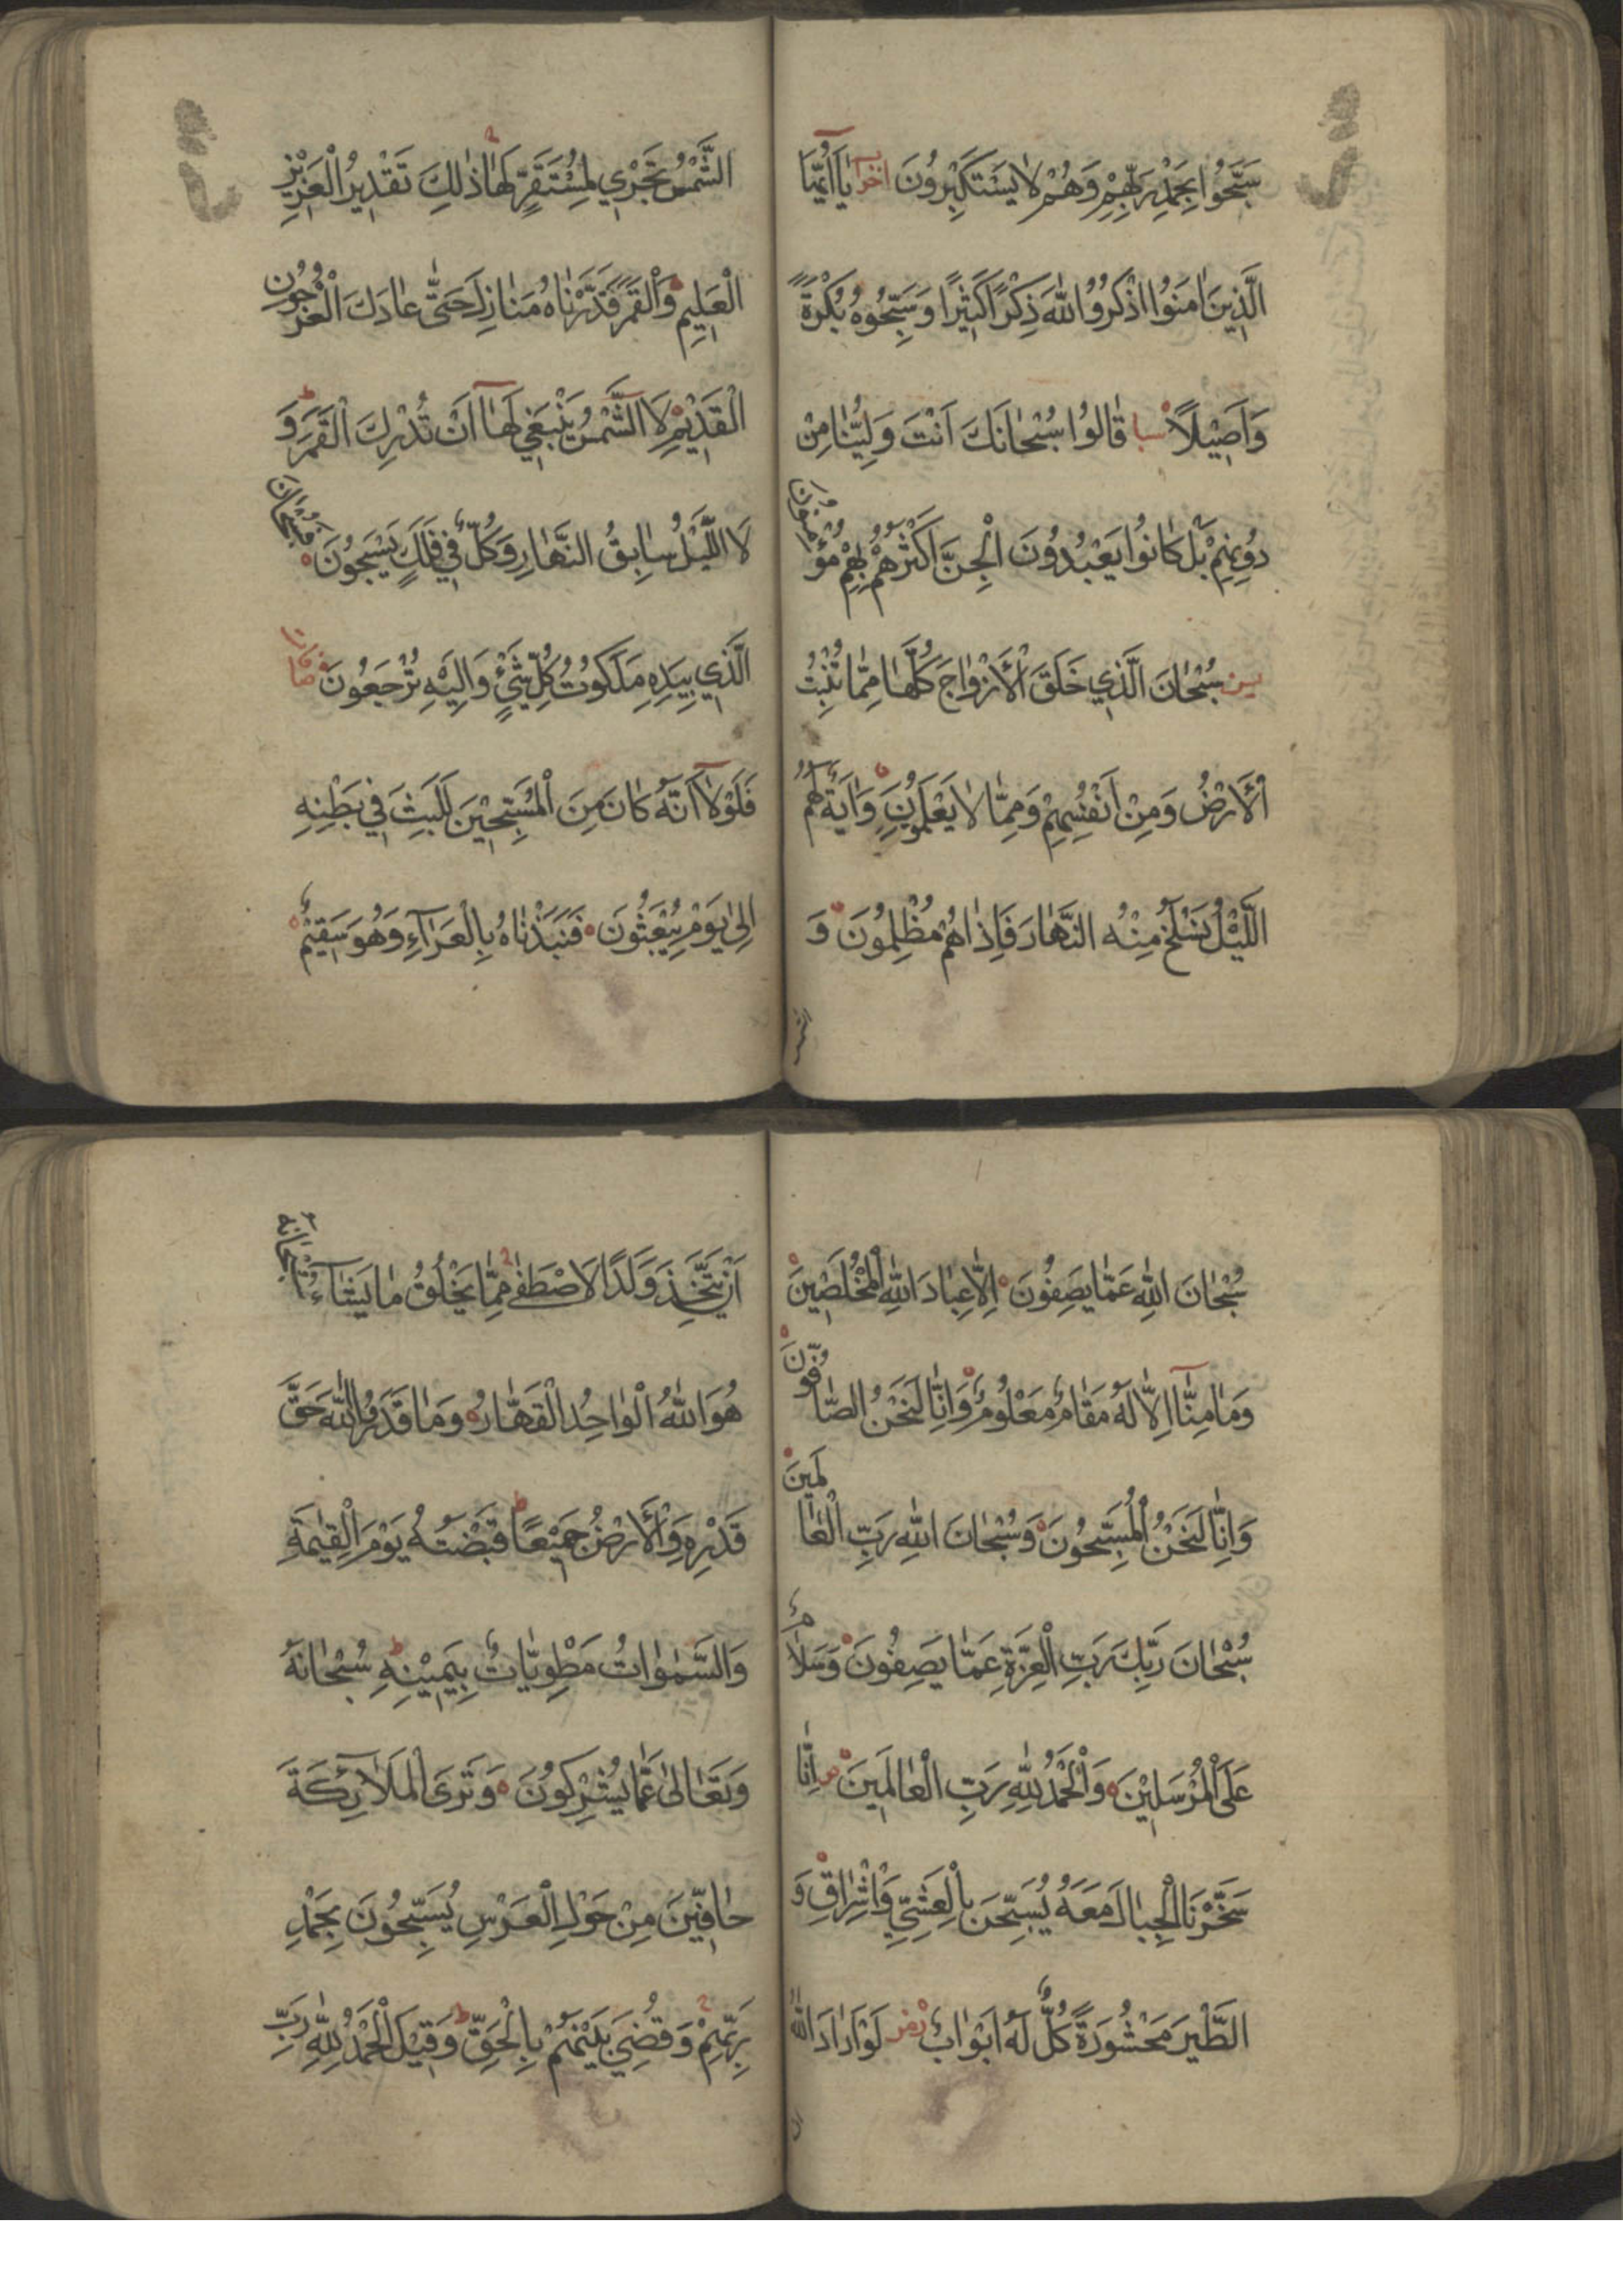 سَبَّحُوا بِحَمْدِ رَبِّهِمْ وَهُمْ لَا يَسْتَكْبِرُونَ اخزا يَا أَيُّهَا
الَّذِينَ اٰمَنُوا اذْكُرُوا اللّٰهَ ذِكْرًا كَثِيرًا وَسَبِّحُوهُ بُكْرَةً
وَاَصِيلًا سبا قَالُوا سُبْحَانَكَ اَنْتَ وَلِيُّنَا مِنْ
دُونِهِمْ بَلْ كَانُوا يَعْبُدُونَ الْجِنَّ اَكْثَرُهُمْ بِهِمْ مُؤْمِنُونَ
يس سُبْحَانَ الَّذِي خَلَقَ الْاَزْوَاجَ كُلَّهَا مِمَّا تُنْبِتُ
الْاَرْضُ وَمِنْ اَنْفُسِهِمْ وَمِمَّا لَا يَعْلَمُونَ وَاٰيَةٌ لَهُمُ
اللَّيْلُ نَسْلَخُ مِنْهُ النَّهَارَ فَاِذَا هُمْ مُظْلِمُونَ وَ
الشَّمْسُ تَجْرِي لِمُسْتَقَرٍّ لَهَا ذٰلِكَ تَقْدِيرُ الْعَزِيزِ
الْعَلِيمِ وَالْقَمَرَ قَدَّرْنَاهُ مَنَازِلَ حَتَّى عَادَ كَالْعُرْجُونِ
الْقَدِيمِ لَا الشَّمْسُ يَنْبَغِي لَهَا اَنْ تُدْرِكَ الْقَمَرَ وَ
لَا اللَّيْلُ سَابِقُ النَّهَارِ وَكُلٌّ فِي فَلَكٍ يَسْبَحُونَ فَسُبْحَانَ
الَّذِي بِيَدِهِ مَلَكُوتُ كُلِّ شَيْءٍ وَاِلَيْهِ تُرْجَعُونَ صافات
فَلَوْلَا اَنَّهُ كَانَ مِنَ الْمُسَبِّحِينَ لَلَبِثَ فِي بَطْنِهِ
اِلٰى يَوْمِ يُبْعَثُونَ فَنَبَذْنَاهُ بِالْعَرَاءِ وَهُوَ سَقِيمٌ
سُبْحَانَ اللّٰهِ عَمَّا يَصِفُونَ اِلَّا عِبَادَ اللّٰهِ الْمُخْلَصِينَ
وَمَا مِنَّا اِلَّا لَهُ مَقَامٌ مَعْلُومٌ وَاِنَّا لَنَحْنُ الصَّافُّونَ
وَاِنَّا لَنَحْنُ الْمُسَبِّحُونَ وَسُبْحَانَ اللّٰهِ رَبِّ الْعَالَمِينَ
سُبْحَانَ رَبِّكَ رَبِّ الْعِزَّةِ عَمَّا يَصِفُونَ وَسَلَامٌ
عَلَى الْمُرْسَلِينَ وَالْحَمْدُ لِلّٰهِ رَبِّ الْعَالَمِينَ ص اِنَّا
سَخَّرْنَا الْجِبَالَ مَعَهُ يُسَبِّحْنَ بِالْعَشِيِّ وَالْاِشْرَاقِ وَ
الطَّيْرَ مَحْشُورَةً كُلٌّ لَهُ اَبْوَابٌ زمر لَوْ اَرَادَ اللّٰهُ
اَنْ يَتَّخِذَ وَلَدًا لَاصْطَفٰى مِمَّا يَخْلُقُ مَا يَشَاءُ سُبْحَانَهُ
هُوَ اللّٰهُ الْوَاحِدُ الْقَهَّارُ وَمَا قَدَرُوا اللّٰهَ حَقَّ
قَدْرِهِ وَالْاَرْضُ جَمِيعًا قَبْضَتُهُ يَوْمَ الْقِيٰمَةِ
وَالسَّمٰوَاتُ مَطْوِيَّاتٌ بِيَمِينِهِ سُبْحَانَهُ
وَتَعَالٰى عَمَّا يُشْرِكُونَ وَتَرَى الْمَلَائِكَةَ
حَافِّينَ مِنْ حَوْلِ الْعَرْشِ يُسَبِّحُونَ بِحَمْدِ
رَبِّهِمْ وَقُضِيَ بَيْنَهُمْ بِالْحَقِّ وَقِيلَ الْحَمْدُ لِلّٰهِ رَبِّ